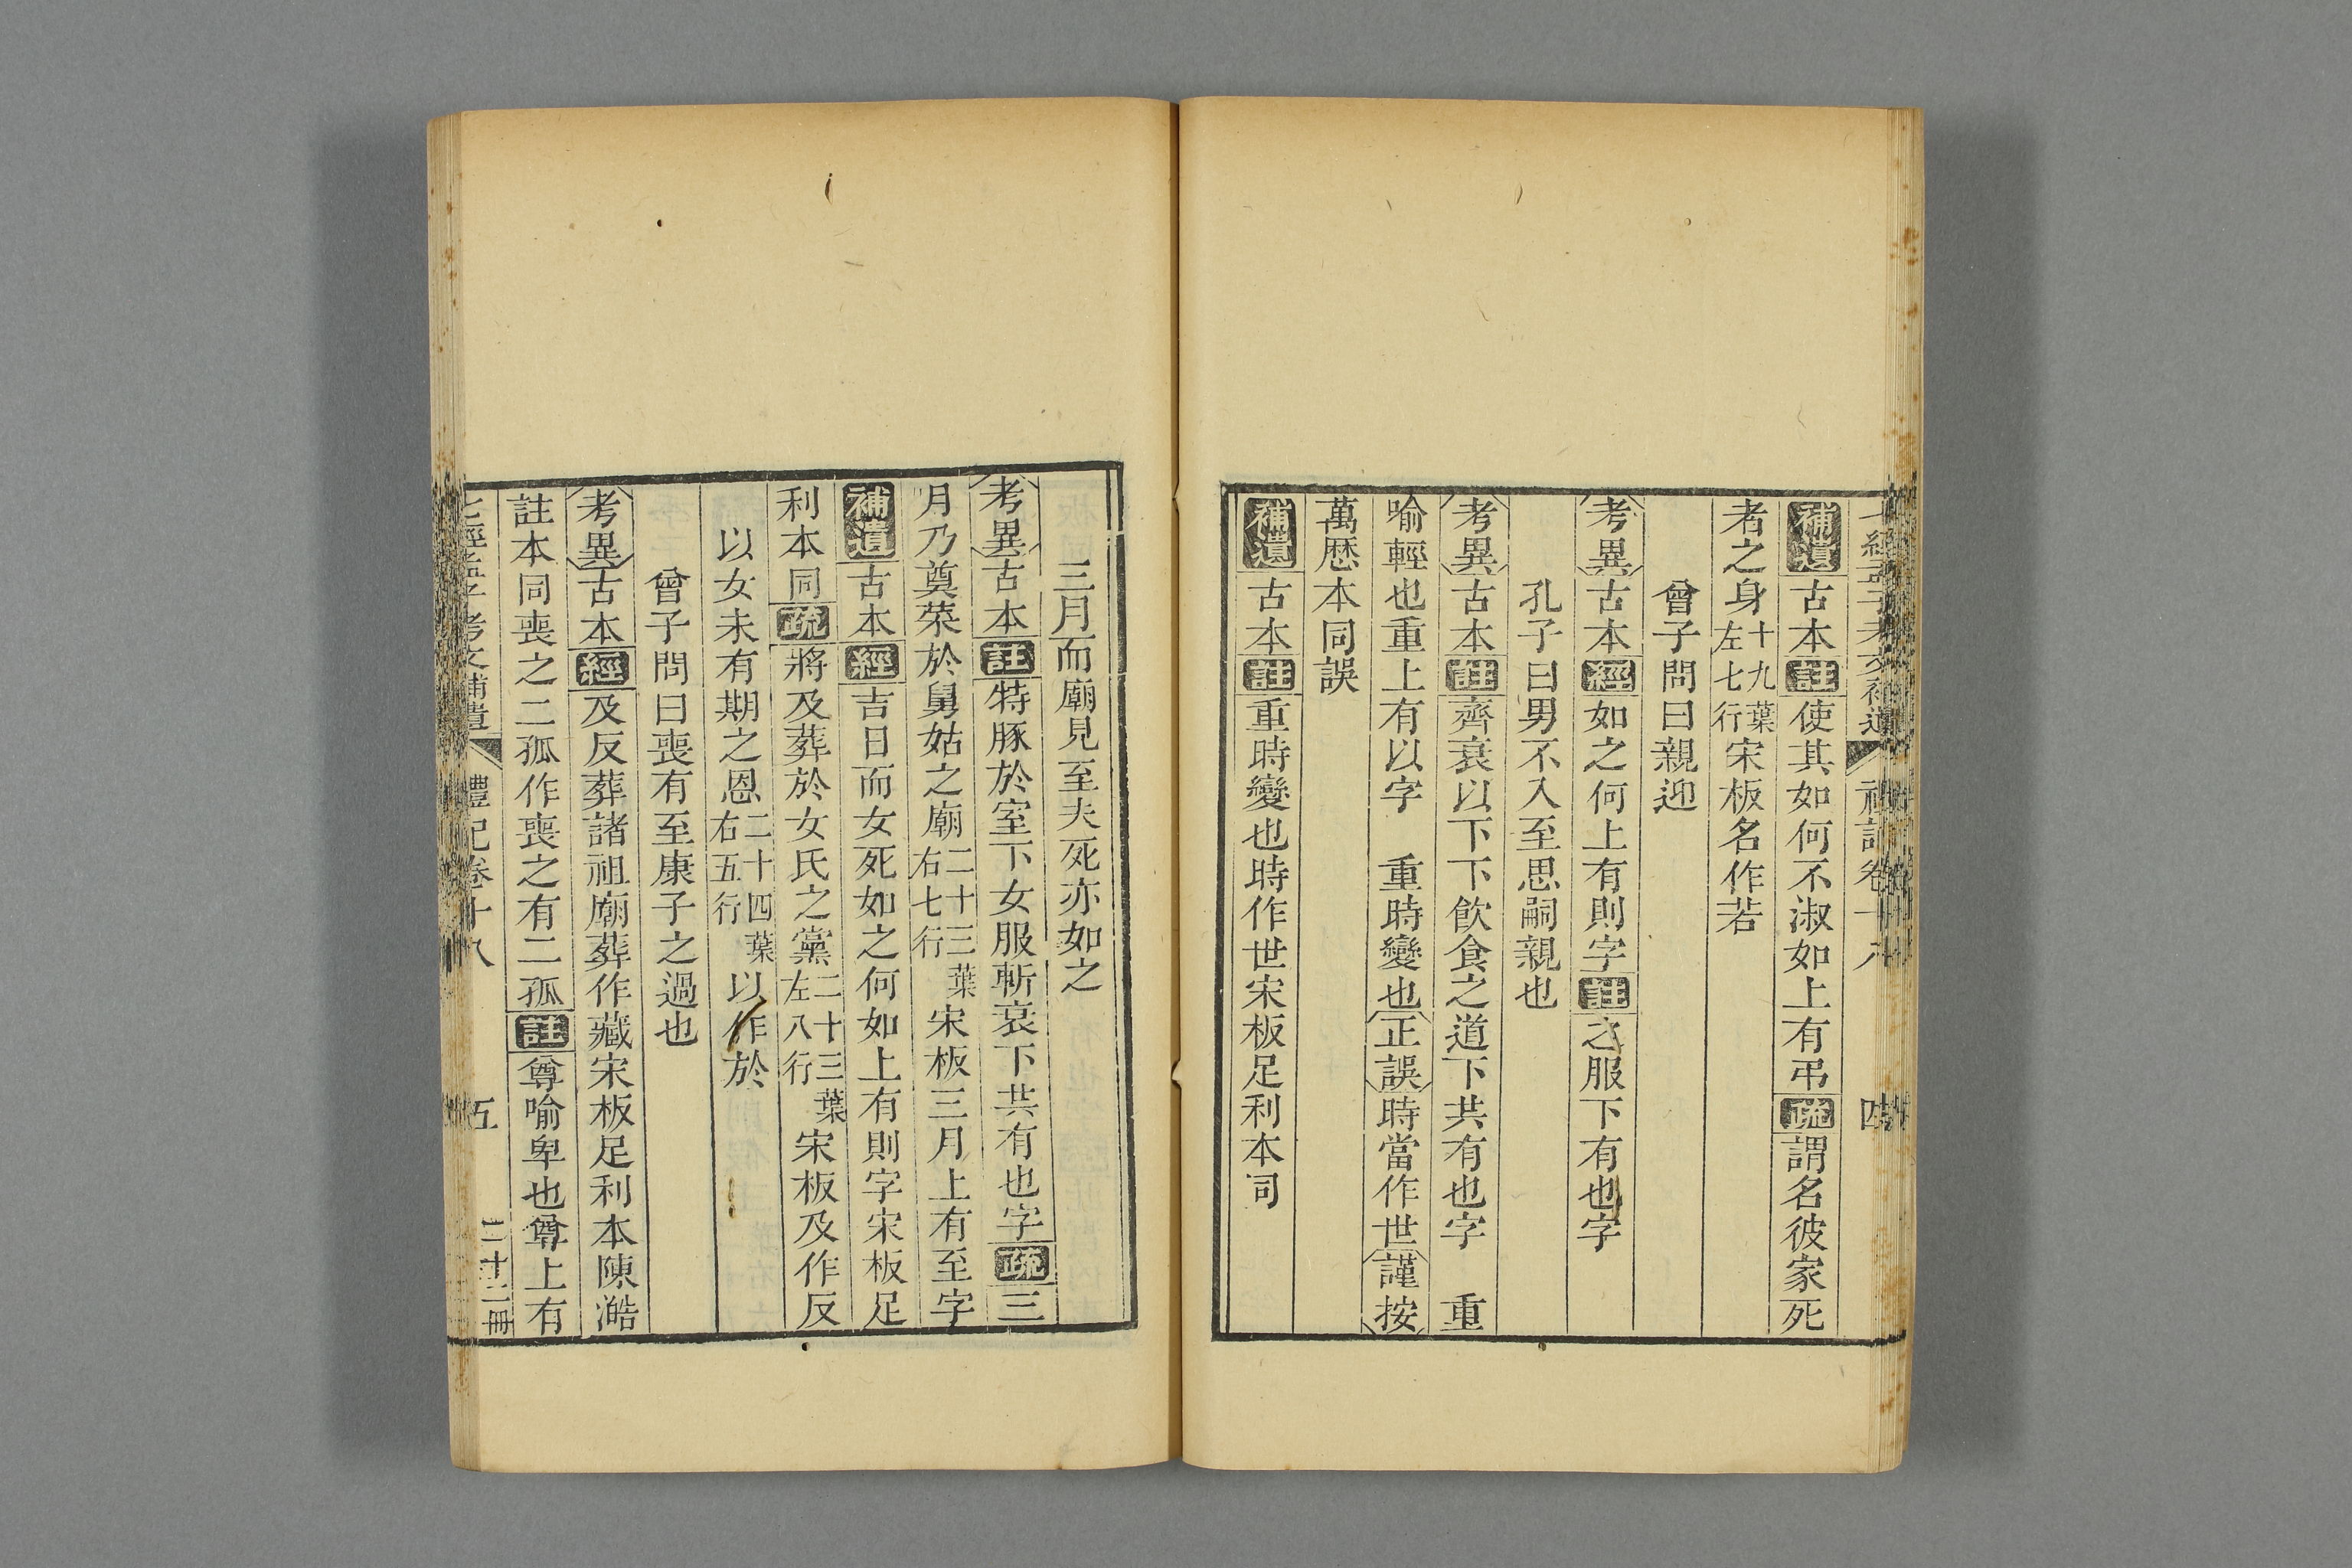 七經孟子考文補遺 禮記卷十八 四
補遺古本註使其如何不淑如上有弔疏謂名彼家死
者之身十九葉左七行宋板名作若
曾子問曰親迎
考異古本經如之何上有則字註之服下有也字
孔子曰男不入至思嗣親也
考異古本註齊衰以下下飲食之道下共有也字 重
喻輕也重上有以字 重時變也正誤時當作世謹按
萬曆本同誤
補遺古本註重時變也時作世宋板足利本同
三月而廟見至夫死亦如之
考異古本註特豚於室下女服斬衰下共有也字疏三
月乃奠菜於舅姑之廟二十三葉右七行宋板三月上有至字
補遺古本經吉日而女死如之何如上有則字宋板足
利本同疏將及葬於女氏之黨二十三葉左八行宋板及作反
以女未有期之恩二十四葉右五行以作於
曾子問曰喪有至康子之過也
考異古本經及反葬諸祖廟葬作藏宋板足利本陳澔
註本同喪之二孤作喪之有二孤註尊喻卑也尊上有
七經孟子考文補遺 禮記卷十八 五 二十二冊